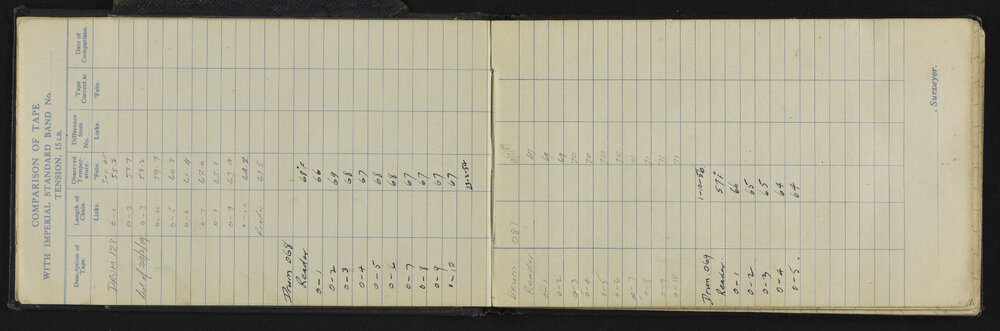 COMPARISON OF TAPE
WITH IMPERIAL STANDARD BAND No.
TENSION, 15 LB.
Description of Tape. Length of Chain. Observed Temperature. Difference from No. Tape Correct at Date of Comparison.
Links. °Fahr. Links. °Fahr.
Drum 128
0-1 55.2
0-2 57.7
0-3
0-4 59.7
0-5
0-6 61.4
0-7
0-8
0-9
0-10
Reader 61.5
Drum 068
Reader 68½
0-1 66
0-2 69
0-3 68
0-4 67
0-5 68
0-6 68
0-7 67
0-8 67
0-9 67
0-10 67
Drum 081
Reader 67
0-1 69
0-2 69
0-3 70
0-4 70
0-5 70
0-6 70
0-7 71
0-8 71
0-9 71
0-10 71
1-12-56
Drum 069
Reader
0-1 66
0-2 65
0-3 65
0-4 64
0-5. 64
, Surveyor.